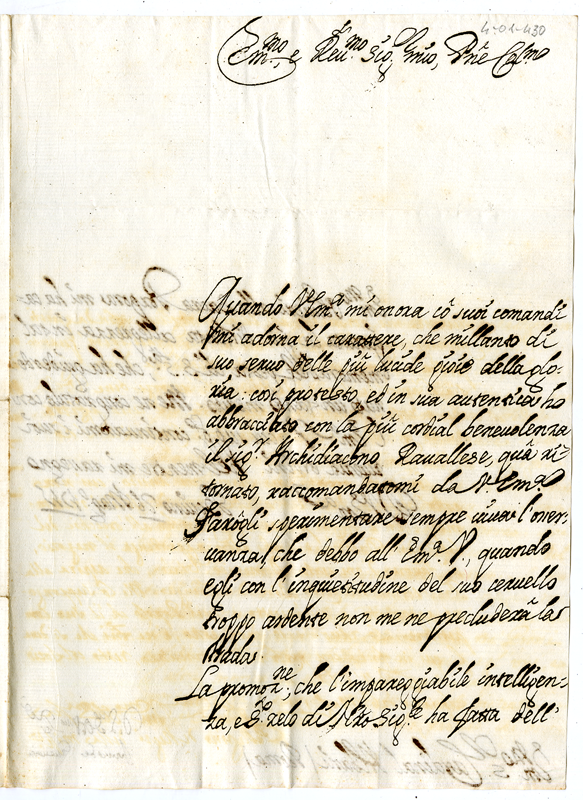 4-01-430
Em.mo e Reu.mo Sig.r mio, Pne Col.mo
Quando V. Em.a mi onora cō suoi comandi
mi adorna il carattere, che millanto di
suo seruo delle più lucide gioie della glo-
ria: così protesto, ed in sua autentica ho
abbracciato con la più cordial beneuolenza
il sig.r Archidiacono Rauallese, quà ri-
tornato, raccomandatomi da V. Em.a
Farogli sperimentare sempre uiua l'osser-
uanza, che debbo all'Em.a V., quando
egli con l'inquietitudine del suo ceruello
troppo ardente non me ne precluderà la
strada.
La promoz.ne, che l'impareggiabile intelligen-
za, e zelo di N̄ro Sig.re ha fatta dell'